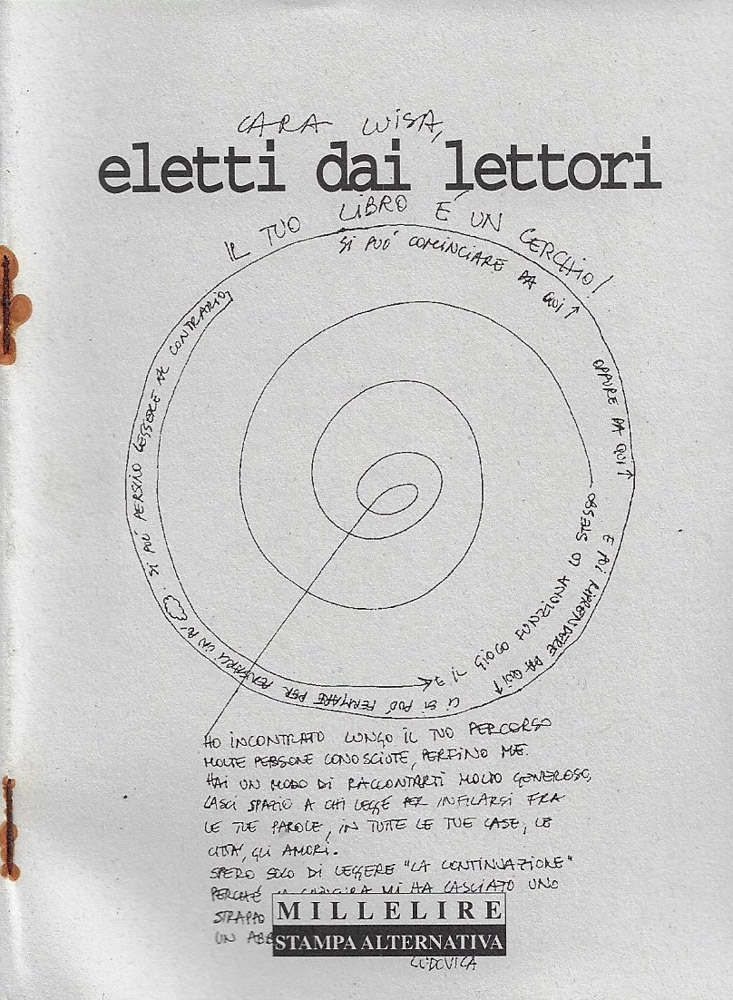 CARA LUISA,
eletti dai lettori
IL TUO LIBRO É UN CERCHIO!
SI PUÓ COMINCIARE DA QUI ↑
OPPURE DA QUI ↑
E POI RIPRENDERE DA QUI ↑
CI SI PUÓ FERMARE PER PENSARCI UN PO'
SI PUÓ PERSINO LEGGERE AL CONTRARIO,
E IL GIOCO FUNZIONA LO STESSO
HO INCONTRATO LUNGO IL TUO PERCORSO
MOLTE PERSONE CONOSCIUTE, PERFINO ME.
HAI UN MODO DI RACCONTARTI MOLTO GENEROSO,
LASCI SPAZIO A CHI LEGGE PER INFILARSI FRA
LE TUE PAROLE, IN TUTTE LE TUE CASE, LE
CITTÁ, GLI AMORI.
SPERO SOLO DI LEGGERE "LA CONTINUAZIONE"
PERCHÉ MI HA LASCIATO UNO
STRAPPO
UN
MILLELIRE
STAMPA ALTERNATIVA
LUDOVICA